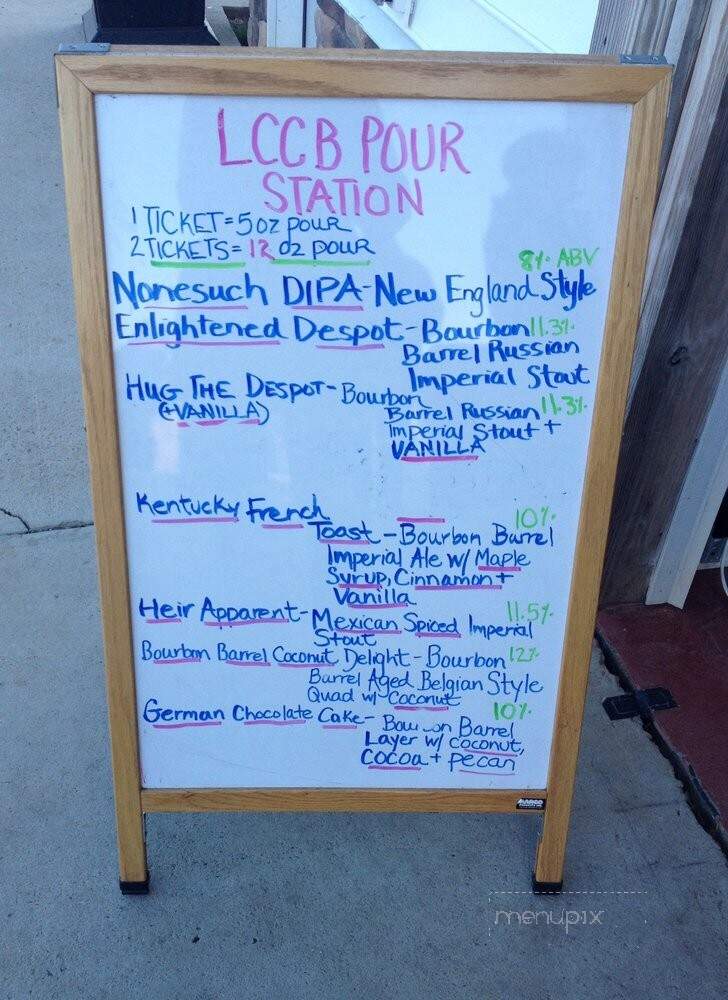 LCCB POUR
STATION
1 TICKET = 5 oz POUR
2 TICKETS = 12 oz POUR
8% ABV
Nonesuch DIPA - New England Style
Enlightened Despot - Bourbon 11.3%
Barrel Russian
Imperial Stout
HUG THE DESPOT - Bourbon
(+VANILLA) Barrel Russian 11.3%
Imperial Stout +
VANILLA
Kentucky French 10%
Toast - Bourbon Barrel
Imperial Ale w/ Maple
Syrup, Cinnamon +
Vanilla
Heir Apparent - Mexican Spiced Imperial 11.5%
Stout
Bourbon Barrel Coconut Delight - Bourbon 12%
Barrel Aged Belgian Style
Quad w/ Coconut
German Chocolate Cake - Bou on Barrel 10%
Layer w/ Coconut,
Cocoa + pecan
menupix